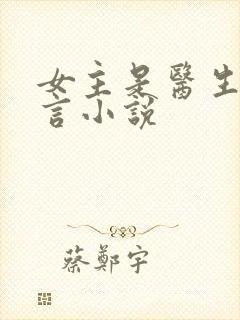 女主是醫生
言小說
蔡鄭宇